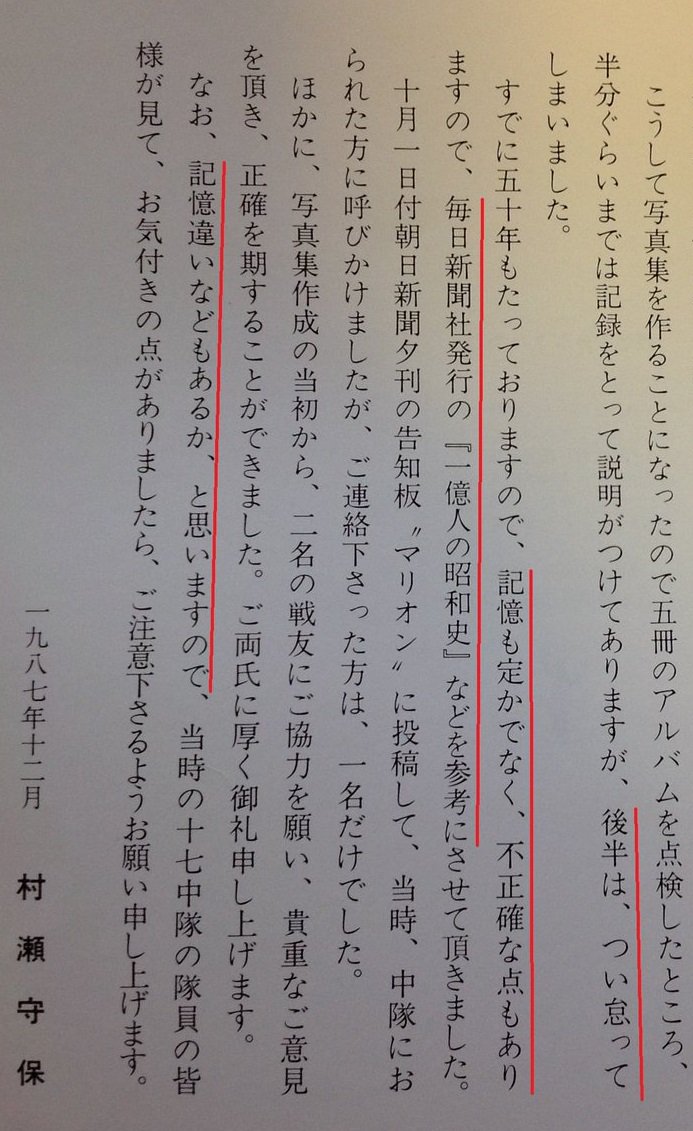 こうして写真集を作ることになったので五冊のアルバムを点検したところ、
半分ぐらいまでは記録をとって説明がつけてありますが、後半は、つい怠って
しまいました。
すでに五十年もたっておりますので、記憶も定かでなく、不正確な点もあり
ますので、毎日新聞社発行の『一億人の昭和史』などを参考にさせて頂きました。
十月一日付朝日新聞夕刊の告知板〝マリオン〟に投稿して、当時、中隊にお
られた方に呼びかけましたが、ご連絡下さった方は、一名だけでした。
ほかに、写真集作成の当初から、二名の戦友にご協力を願い、貴重なご意見
を頂き、正確を期することができました。ご両氏に厚く御礼申し上げます。
なお、記憶違いなどもあるか、と思いますので、当時の十七中隊の隊員の皆
様が見て、お気付きの点がありましたら、ご注意下さるようお願い申し上げます。
一九八七年十二月 村瀬守保